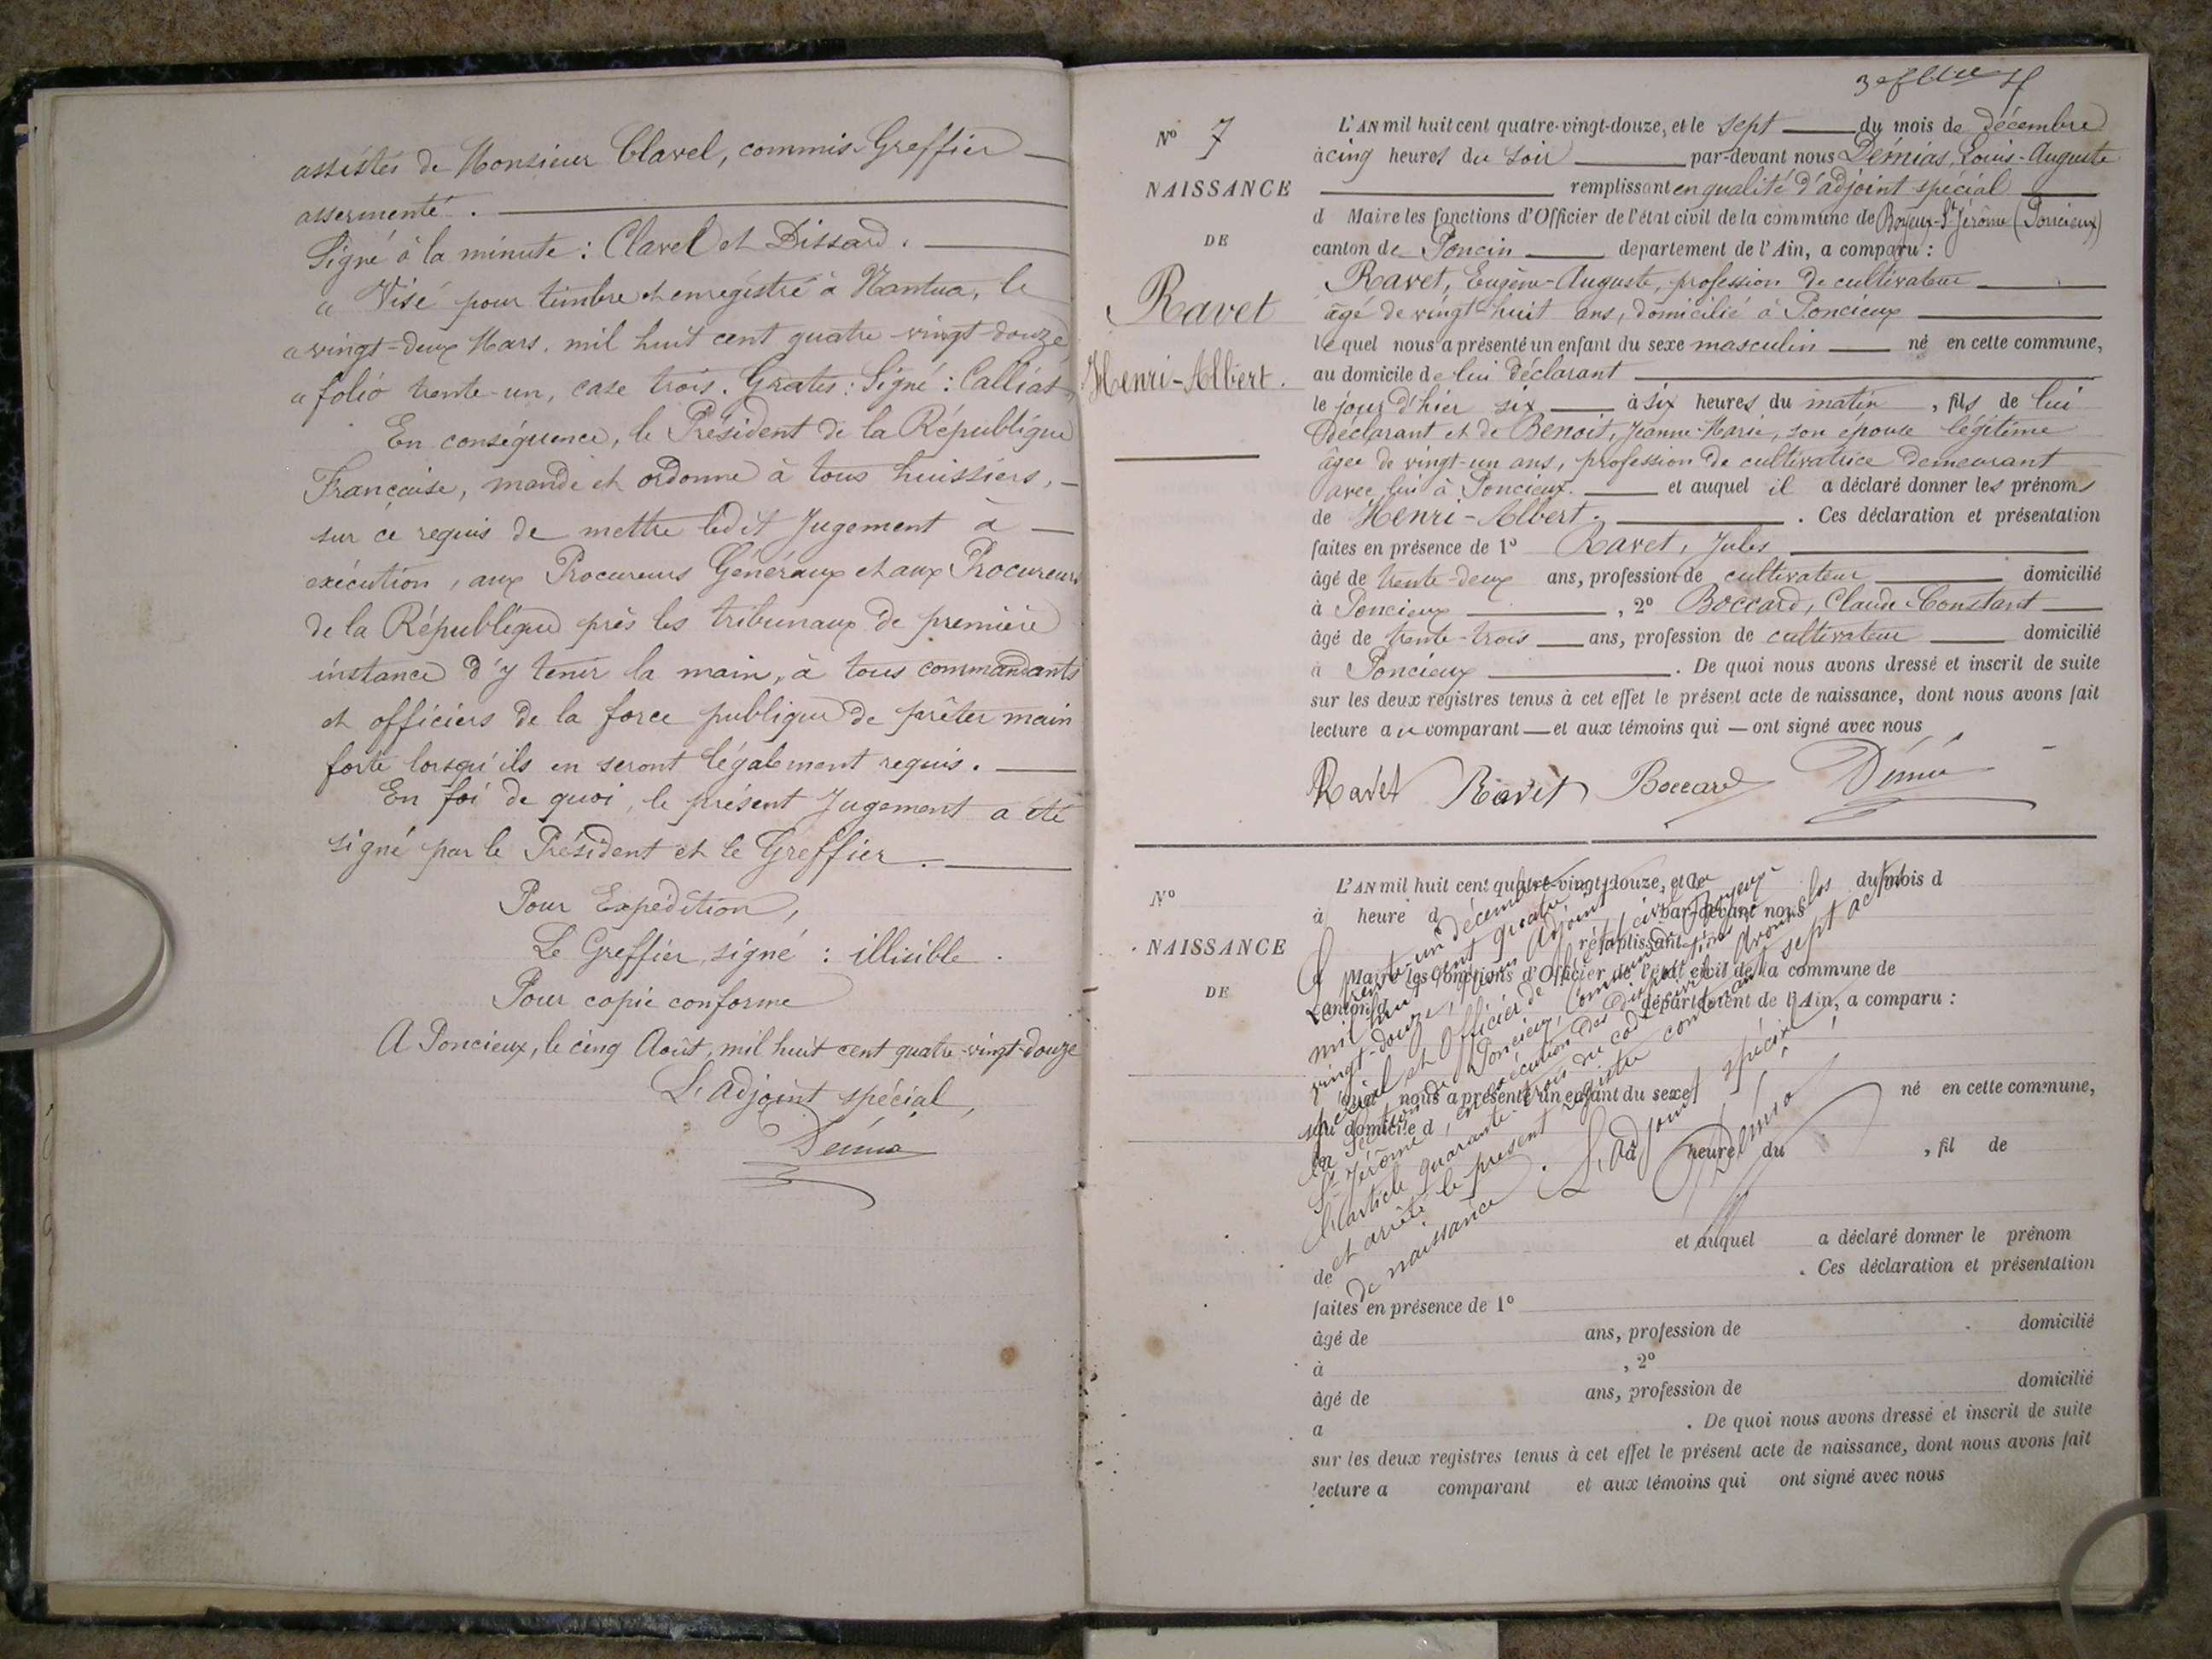 assistés de Monsieur Clavel, commis-Greffier
assermenté.
Signé à la minute : Clavel et Dissard.
« Visé pour timbre et enregistré à Nantua, le
« vingt-deux Mars, mil huit cent quatre-vingt-douze,
« folio trente-un, case trois. Gratis : Signé : Calliat,
En conséquence, le Président de la République
Française, mande et ordonne à tous huissiers,
sur ce requis de mettre ledit Jugement à
exécution, aux Procureurs Généraux et aux Procureurs
de la République près les tribunaux de première
instance d'y tenir la main, à tous commandants
et officiers de la force publique de prêter main
forte lorsqu'ils en seront légalement requis.
En foi de quoi, le présent Jugement a été
signé par le Président et le Greffier.
Pour Expédition,
Le Greffier, signé : illisible.
Pour copie conforme
A Poncieux, le cinq Août, mil huit cent quatre-vingt-douze
L'adjoint spécial,
Démia
N° 7
NAISSANCE
DE
Ravet
Henri-Albert.
L'AN mil huit cent quatre-vingt-douze, et le sept du mois de décembre
à cinq heures du soir par-devant nous Démias, Louis-Auguste
remplissant en qualité d'adjoint spécial
d Maire les fonctions d'Officier de l'état civil de la commune de Boyeux-St Jérôme (Poncieux)
canton de Poncin département de l'Ain, a comparu :
Ravet, Eugène-Auguste, profession de cultivateur
âgé de vingt-huit ans, domicilié à Poncieux
lequel nous a présenté un enfant du sexe masculin né en cette commune,
au domicile de lui déclarant
le jour d'hier six à six heures du matin, fils de lui
déclarant et de Benoit, Jeanne-Marie, son épouse légitime
âgée de vingt-un ans, profession de cultivatrice demeurant
avec lui à Poncieux. et auquel il a déclaré donner les prénoms
de Henri-Albert. Ces déclaration et présentation
faites en présence de 1° Ravet, Jules
âgé de trente-deux ans, profession de cultivateur domicilié
à Poncieux, 2° Boccard, Claude-Constant
âgé de trente-trois ans, profession de cultivateur domicilié
à Poncieux. De quoi nous avons dressé et inscrit de suite
sur les deux registres tenus à cet effet le présent acte de naissance, dont nous avons fait
lecture au comparant et aux témoins qui ont signé avec nous
Ravet Ravet Boccard Démia
N°
NAISSANCE
DE
L'AN mil huit cent quatre-vingt-douze, et le du mois d
à heure d par-devant nous
remplissant
d Maire les fonctions d'Officier de l'état civil de la commune de
canton d département de l'Ain, a comparu :
quel nous a présenté un enfant du sexe né en cette commune,
au domicile d
à heure du , fil de
et auquel a déclaré donner le prénom
de . Ces déclaration et présentation
faites en présence de 1°
âgé de ans, profession de domicilié
à , 2°
âgé de ans, profession de domicilié
a . De quoi nous avons dressé et inscrit de suite
sur les deux registres tenus à cet effet le présent acte de naissance, dont nous avons fait
lecture a comparant et aux témoins qui ont signé avec nous
trente-un décembre
mil huit cent quatre
vingt-douze, Adjoint
spécial et Officier de l'état civil de
la Section de Poncieux, Commune de Boyeux-
St Jérôme, en exécution des dispositions de
l'article quarante-trois du code civil avons clos
et arrêté le présent registre contenant sept actes
de naissance. L'adjoint spécial
Démia